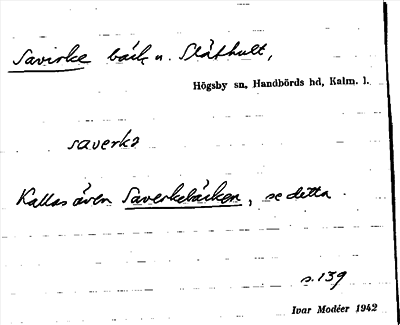 Savirke bäck n. Slåthult,
Högsby sn, Handbörds hd, Kalm. l.
saverkə
Kallas även Saverkebäcken, se detta.
s. 139
Ivar Modéer 1942